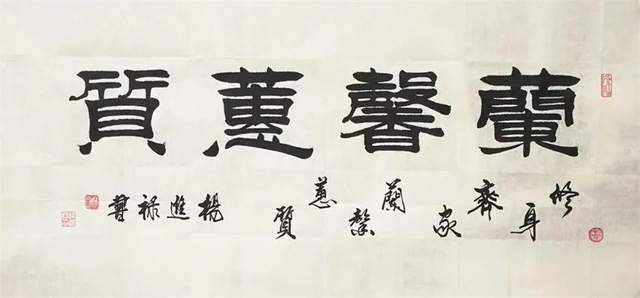 蘭馨蕙質
修身齊家蘭馨蕙質楊進禄書